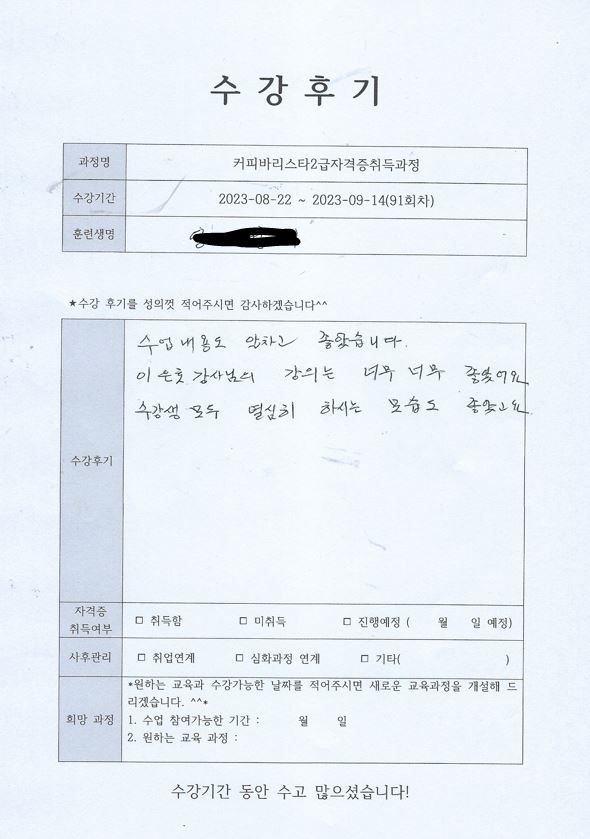 수강후기
과정명 커피바리스타2급자격증취득과정
수강기간 2023-08-22 ~ 2023-09-14(91회차)
훈련생명
★수강 후기를 성의껏 적어주시면 감사하겠습니다^^
수강후기
수업내용도 알차고 좋았습니다.
강사님의 강의는 너무 너무 좋았어요
수강생 모두 열심히 하시는 모습도 좋았고요
자격증
취득여부 □ 취득함 □ 미취득 □ 진행예정 ( 월 일 예정)
사후관리 □ 취업연계 □ 심화과정 연계 □ 기타( )
희망 과정
*원하는 교육과 수강가능한 날짜를 적어주시면 새로운 교육과정을 개설해 드
리겠습니다. ^^*
1. 수업 참여가능한 기간 : 월 일
2. 원하는 교육 과정 :
수강기간 동안 수고 많으셨습니다!